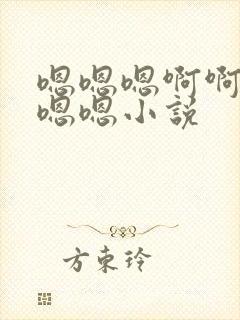 嗯嗯嗯啊啊
嗯嗯小说
方东玲